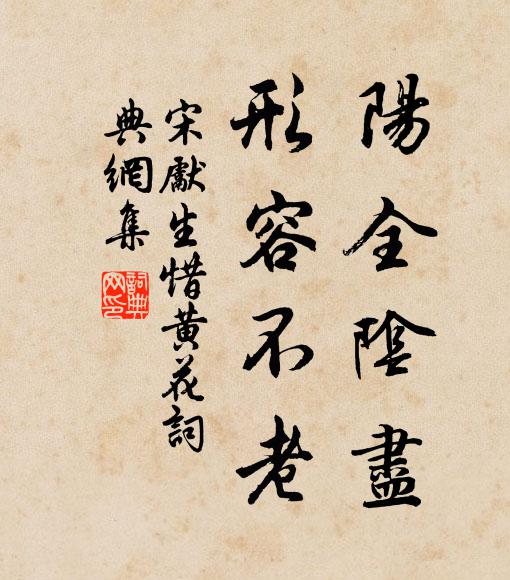 陽全陰盡
形容不老
宋獻生惜黄花詞
典網集
詞典网印